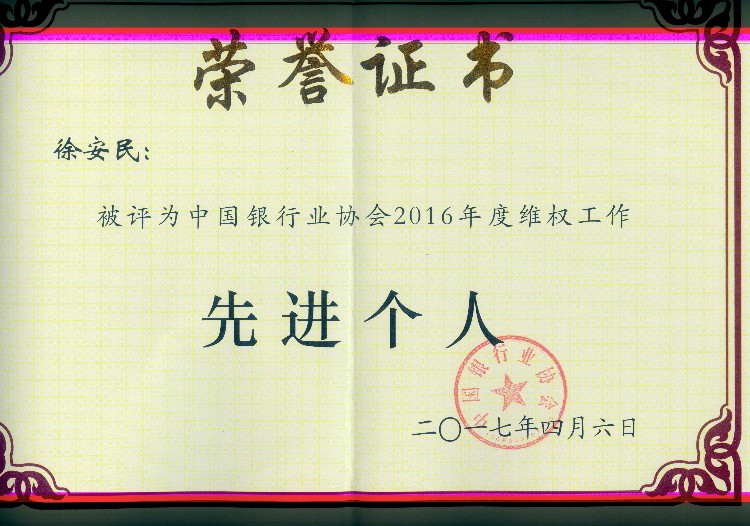 荣誉证书
徐安民:
被评为中国银行业协会2016年度维权工作
先进个人
中国银行业协会
二〇一七年四月六日